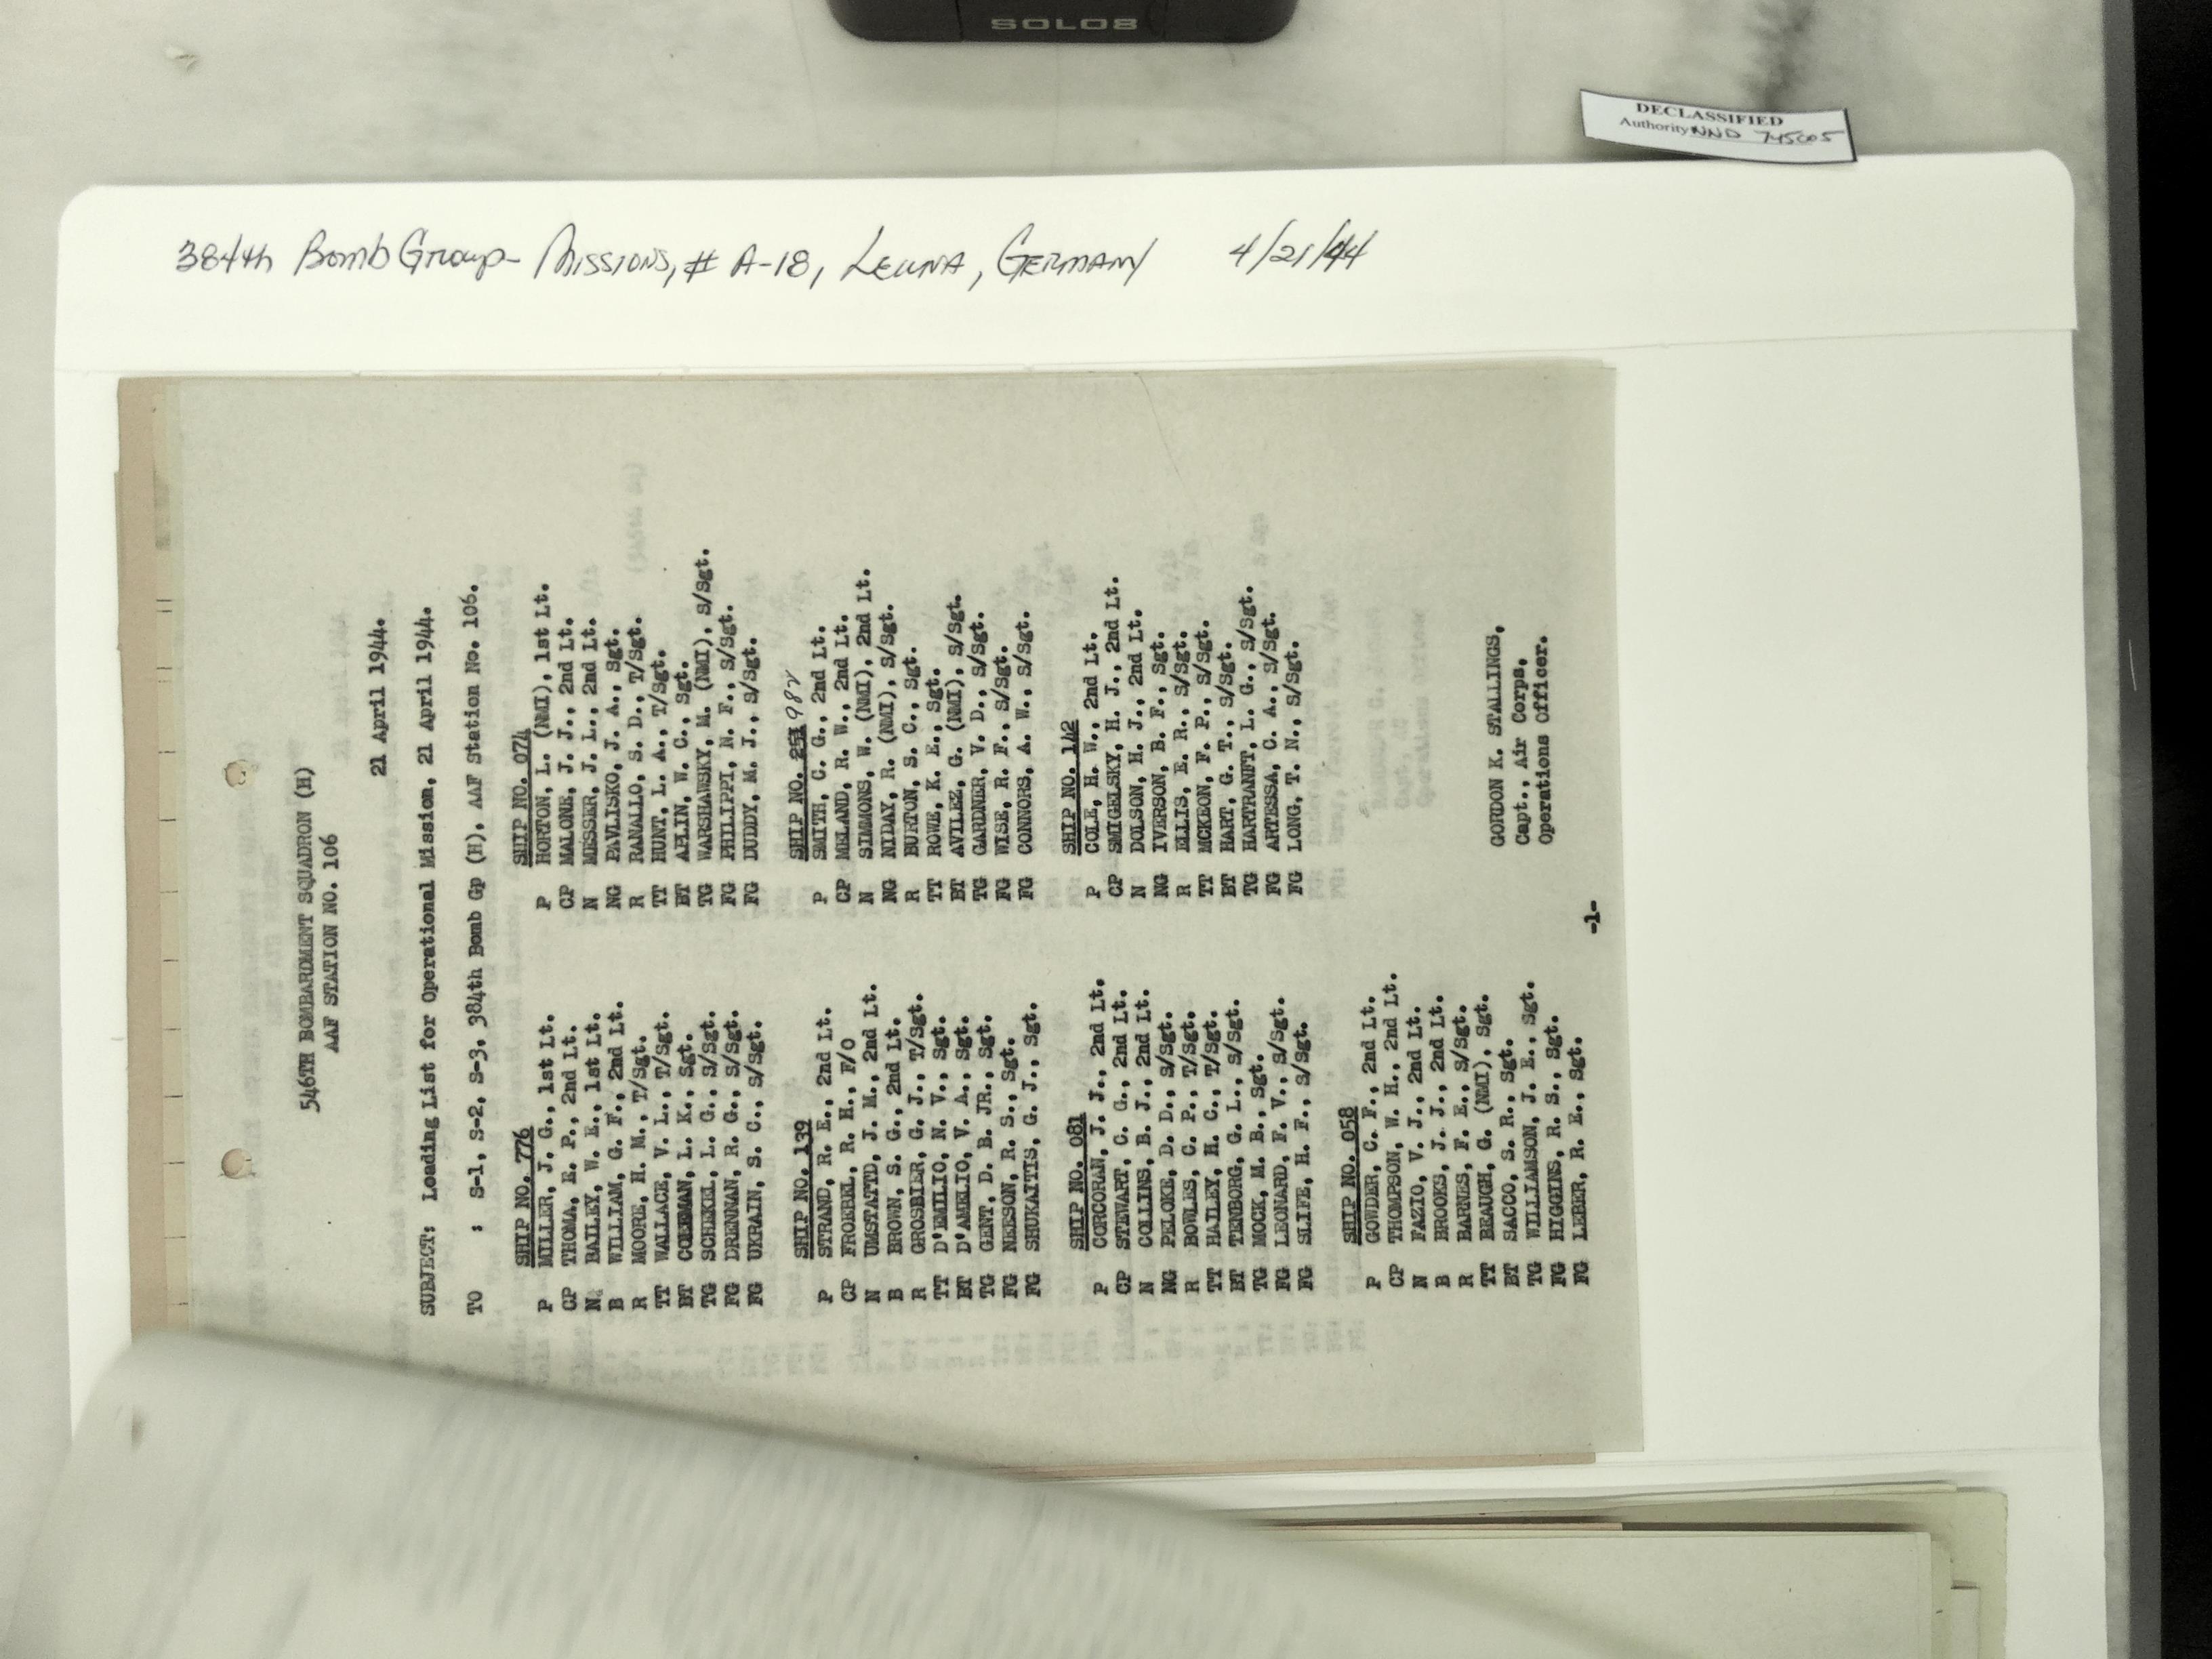 SOLO8
DECLASSIFIED
Authority NND 745005
384th Bomb Group - Missions, # A-18, Leuna, Germany 4/21/44
546TH BOMBARDMENT SQUADRON (H)
AAF STATION NO. 106
21 April 1944.
SUBJECT: Loading List for Operational Mission, 21 April 1944.
TO : S-1, S-2, S-3, 384th Bomb Gp (H), AAF Station No. 106.
SHIP NO. 776
P MILLER, J. G., 1st Lt.
CP THOMA, E. P., 2nd Lt.
N BAILEY, W. E., 1st Lt.
B WILLIAM, G. F., 2nd Lt.
R MOORE, H. M., T/Sgt.
TT WALLACE, V. L., T/Sgt.
BT COLEMAN, L. K., Sgt.
TG SCHEKEL, L. G., S/Sgt.
FG DRENNAN, R. G., S/Sgt.
FG UKRAIN, S. C., S/Sgt.
SHIP NO. 074
P HORTON, L. (NMI), 1st Lt.
CP MALONE, J. J., 2nd Lt.
N MESSER, J. L., 2nd Lt.
NG PAVLISKO, J. A., Sgt.
R RANALLO, S. D., T/Sgt.
TT HUNT, L. A., T/Sgt.
BT APLIN, W. C., Sgt.
TG WARSHAWSKY, M. (NMI), S/Sgt.
FG PHILIPPI, N. F., S/Sgt.
FG DUDDY, M. J., S/Sgt.
SHIP NO. 139
P STRAND, R. E., 2nd Lt.
CP FROEBEL, R. H., F/O
N UMSTATTD, J. M., 2nd Lt.
B BROWN, S. G., 2nd Lt.
R GROSBIER, G. J., T/Sgt.
TT D'EMILIO, N. V., Sgt.
BT D'AMELIO, V. A., Sgt.
TG GENT, D. B. JR., Sgt.
FG NEESON, R. S., Sgt.
FG SHUKAITIS, G. J., Sgt.
SHIP NO. 251 982
P SMITH, C. G., 2nd Lt.
CP MELAND, R. W., 2nd Lt.
N SIMMONS, W. (NMI), 2nd Lt.
NG NIDAY, R. (NMI), S/Sgt.
R BURTON, S. C., Sgt.
TT ROWE, K. E., Sgt.
BT AVILEZ, G. (NMI), S/Sgt.
TG GARDNER, V. D., S/Sgt.
FG WISE, R. F., S/Sgt.
FG CONNORS, A. W., S/Sgt.
SHIP NO. 081
P CORCORAN, J. J., 2nd Lt.
CP STEWART, C. G., 2nd Lt.
N COLLINS, B. J., 2nd Lt.
NG PELOKE, D. D., S/Sgt.
R BOWLES, C. P., T/Sgt.
TT HAILEY, H. C., T/Sgt.
BT TENBORG, G. L., S/Sgt.
TG MOCK, M. B., Sgt.
FG LEONARD, F. V., S/Sgt.
FG SLIFE, H. F., S/Sgt.
SHIP NO. 142
P COLE, H. W., 2nd Lt.
CP SMIGELSKY, H. J., 2nd Lt.
N DOLSON, H. J., 2nd Lt.
NG IVERSON, B. F., Sgt.
R ELLIS, E. R., S/Sgt.
TT MCKEON, F. P., S/Sgt.
BT HART, G. T., S/Sgt.
TG HARTRANFT, L. G., S/Sgt.
FG ARTESSA, C. A., S/Sgt.
FG LONG, T. N., S/Sgt.
SHIP NO. 058
P GOWDER, C. F., 2nd Lt.
CP THOMPSON, W. H., 2nd Lt.
N FAZIO, V. J., 2nd Lt.
B BROOKS, J. J., 2nd Lt.
R BARNES, F. E., S/Sgt.
TT BEAUGH, G. (NMI), Sgt.
BT SACCO, S. R., Sgt.
TG WILLIAMSON, J. E., Sgt.
FG HIGGINS, R. S., Sgt.
FG LEBER, R. E., Sgt.
GORDON K. STALLINGS,
Capt., Air Corps,
Operations Officer.
-1-